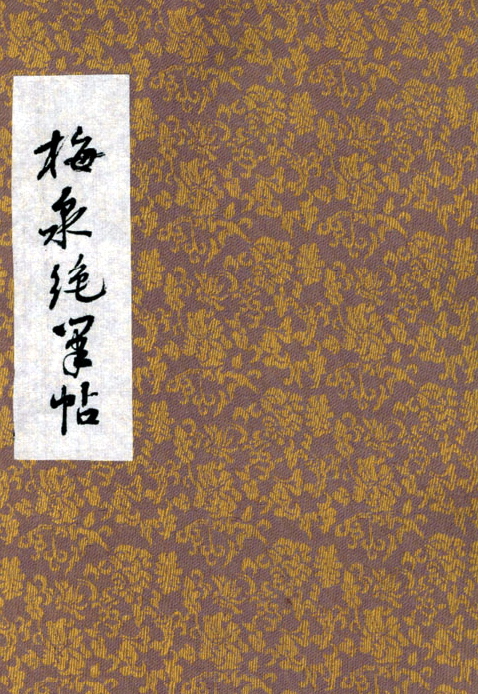 梅泉绝笔帖